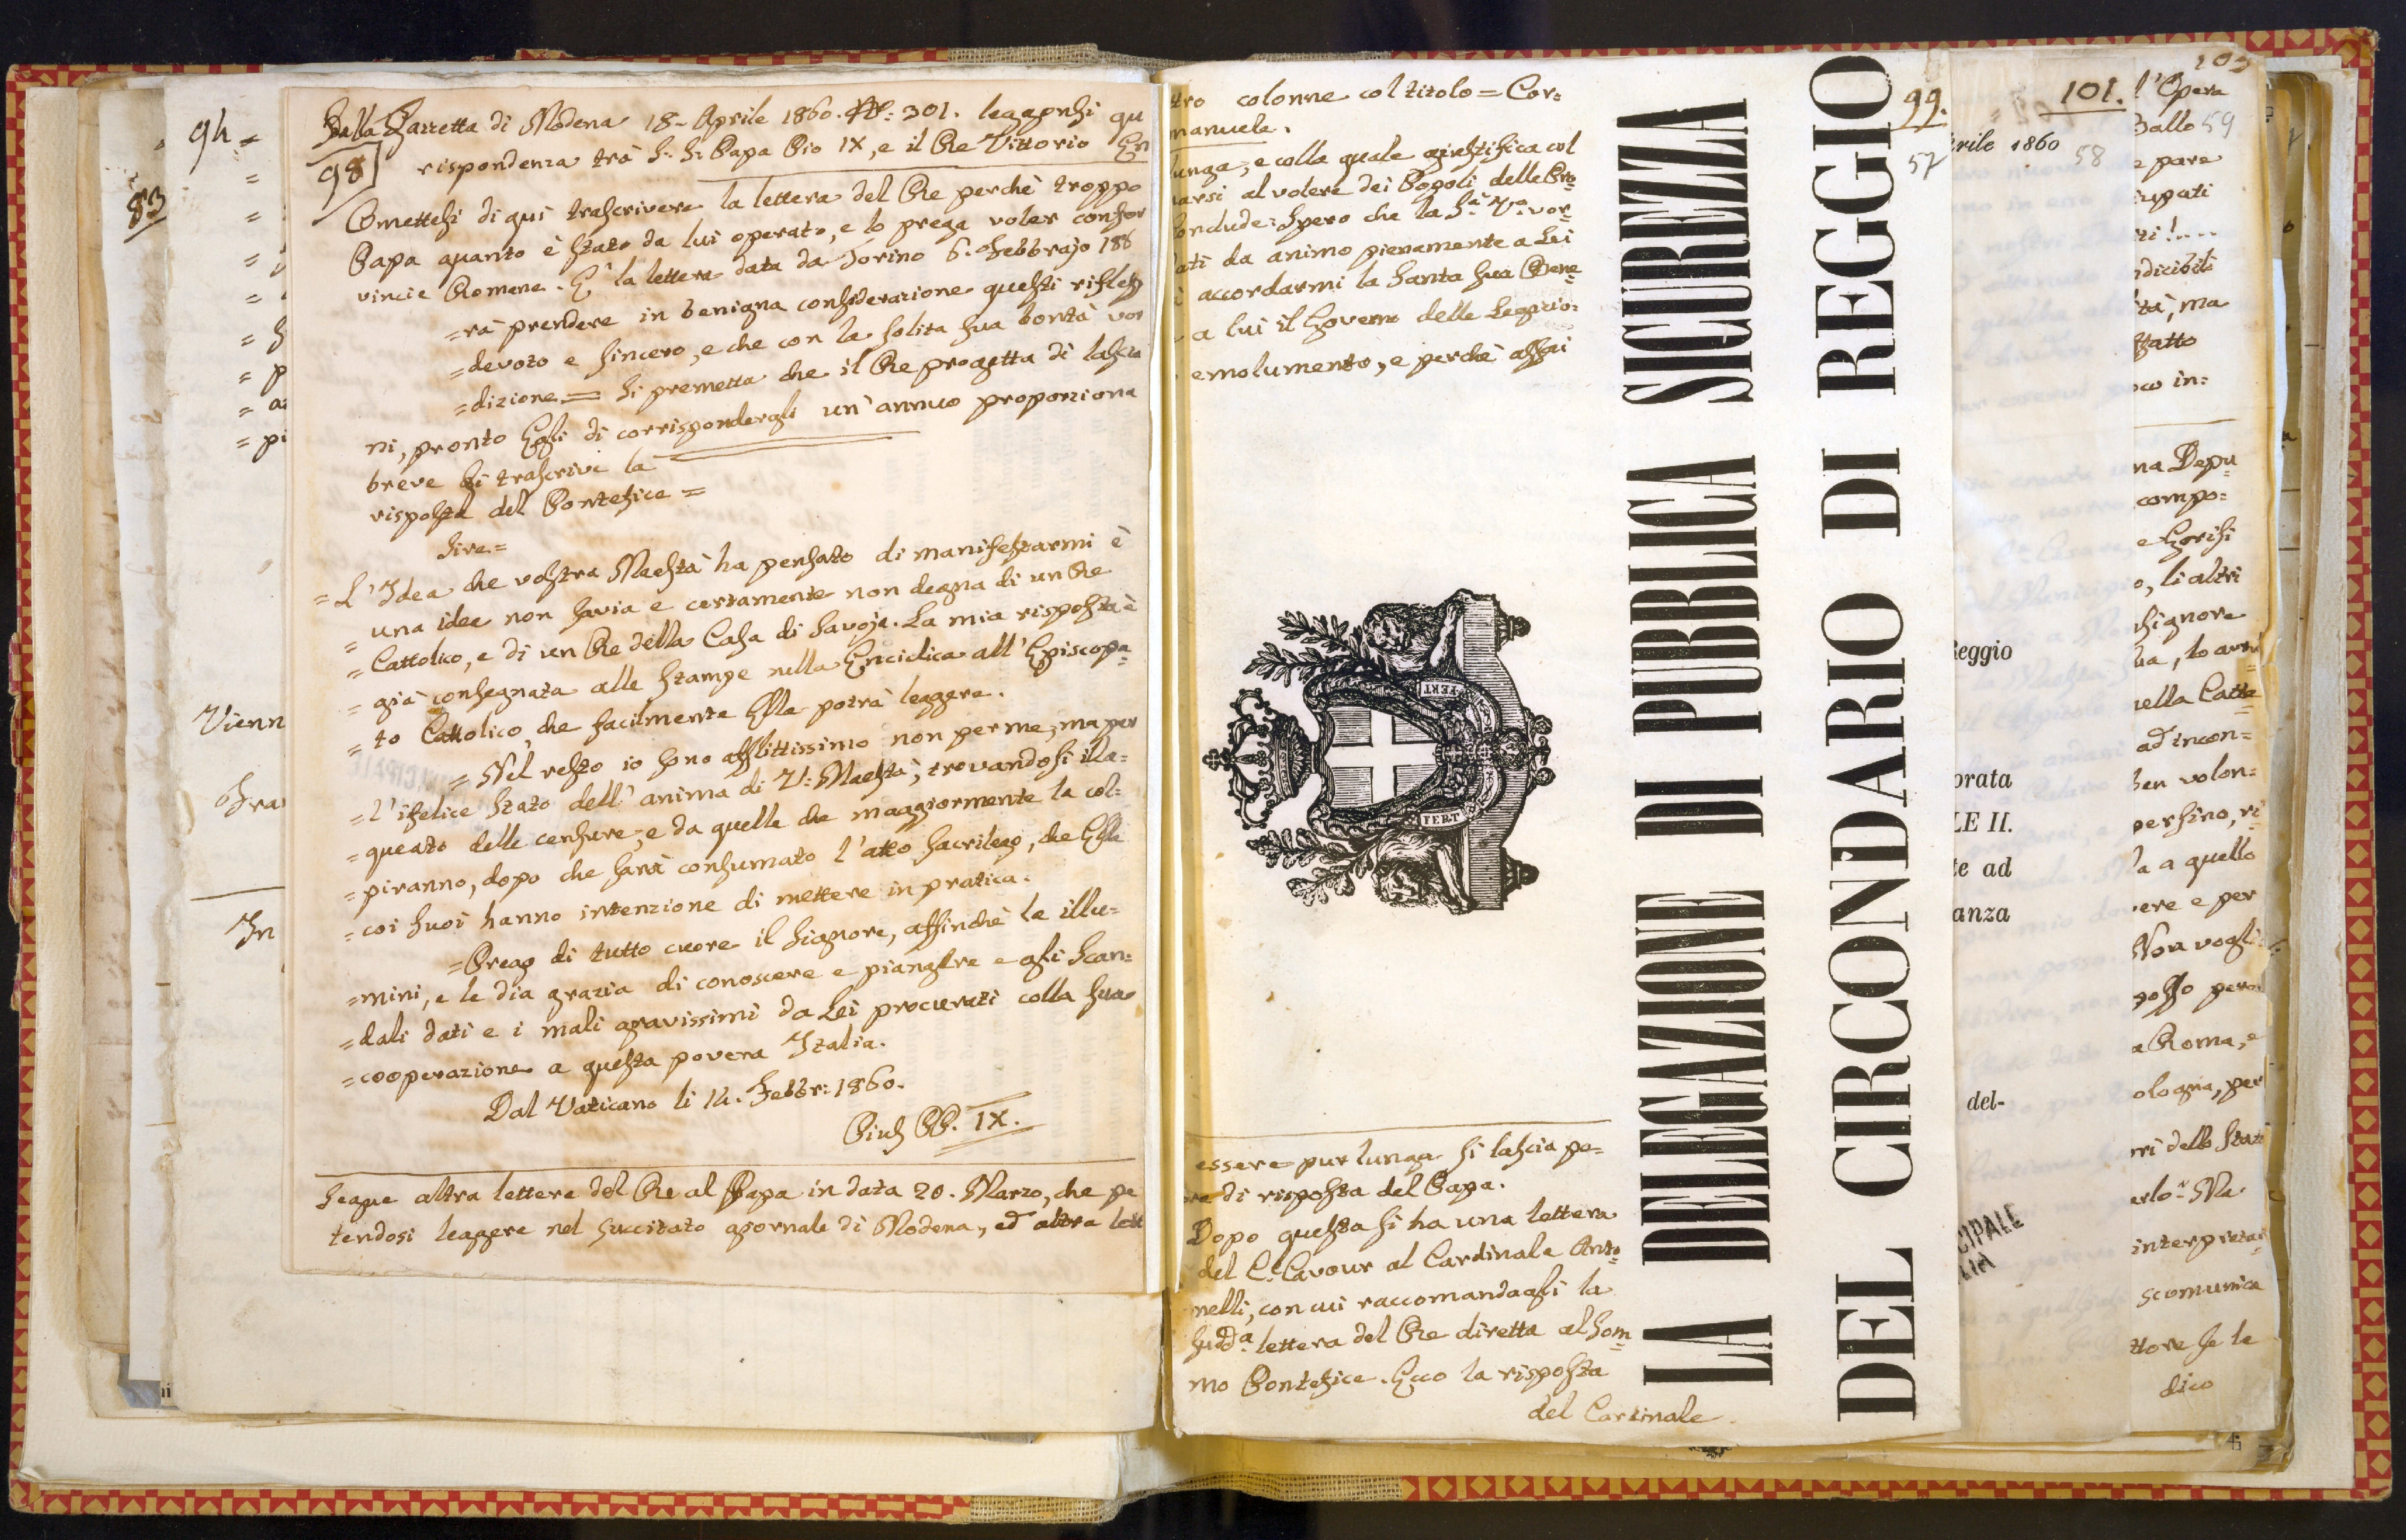 94 =
83
Vienn
In
Dalla Gazzetta di Modena 18. Aprile 1860. N: 301. leggonsi qu
98] rispondenza trà S. S. Papa Pio IX, e il Re Vittorio Em
Omettesi di quì trascrivere la lettera del Re perchè troppo
Papa quanto è stato da lui operato, e lo prega voler confor
vincie Romane. E' la lettera data da Torino 6. Febbrajo 186
=rà prendere in benigna considerazione questi rifless
=devoto e sincero, e che con la solita sua bontà vor
=dizione = Si premetta che il Re progetta di lascia
ni, pronto Egli di corrispondergli un' annuo proporziona
breve si trascrive la
risposta del Pontefice =
Sire =
= L'Idea che vostra Maestà ha pensato di manifestarmi è
= una idea non savia e certamente non degna di un Re
= Cattolico, e di un Re della Casa di Savoja. La mia risposta è
= già consegnata alle stampe nella Enciclica all' Episcopa=
= to Cattolico, che facilmente Ella potrà leggere.
= Nel resto io sono afflittissimo non per me, ma per
= l'ifelice stato dell' anima di V: Maestà, trovandosi illa=
= queato delle censure, e da quelle che maggiormente la col=
= piranno, dopo che sarà consumato l'atto sacrilego, che Ella
= coi suoi hanno intenzione di mettere in pratica.
= Prego di tutto cuore il Signore, affinchè la illu=
=mini, e le dia grazia di conoscere e piangere e gli scan=
=dali dati e i mali gravissimi da Lei procurati colla sua
=cooperazione a questa povera Italia.
Dal Vaticano li 14. Febbr: 1860.
Pius PP. IX.
Segue altra lettera del Re al Papa in data 20. Marzo, che po
tendosi leggere nel succitato giornale di Modena, ed altra lett
tro colonne col titolo = Cor=
manuele.
unga; e colla quale giustifica col
arsi al volere dei Popoli delle Pro=
onclude: Spero che la S.a V.a vor=
ati da animo pienamente a Lei
accordarmi la Santa sua Bene=
a lui il Governo delle Legazio=
emolumento, e perchè assai
essere pur lunga si lascia pe=
re di risposta del Papa.
Dopo questa si ha una lettera
del C.e Cavour al Cardinale Anto=
nelli, con cui raccomandagli la
sudd.a lettera del Re diretta al Som=
mo Pontefice. Ecco la risposta
del Cardinale
FERT
FERT
LA DELEGAZIONE DI PUBBLICA SICUREZZA
DEL CIRCONDARIO DI REGGIO
99.
57
101.
prile 1860
58
Reggio
orata
LE II.
te ad
anza
del-
CIPALE
LIA
103
l'Opera
Ballo 59
e pare
cupati
ndicibili
tà, ma
fatto
oco in=
na Depu
compo=
e Grisi
o, li altri
signore
ella Catte=
ad incon=
ben volon=
persino, ri=
a a quello
ere e per
Non vogli
posso però
a Roma, e
ologna, per
ri dello Stato
interpretar
scomunica
ttore se le
dico